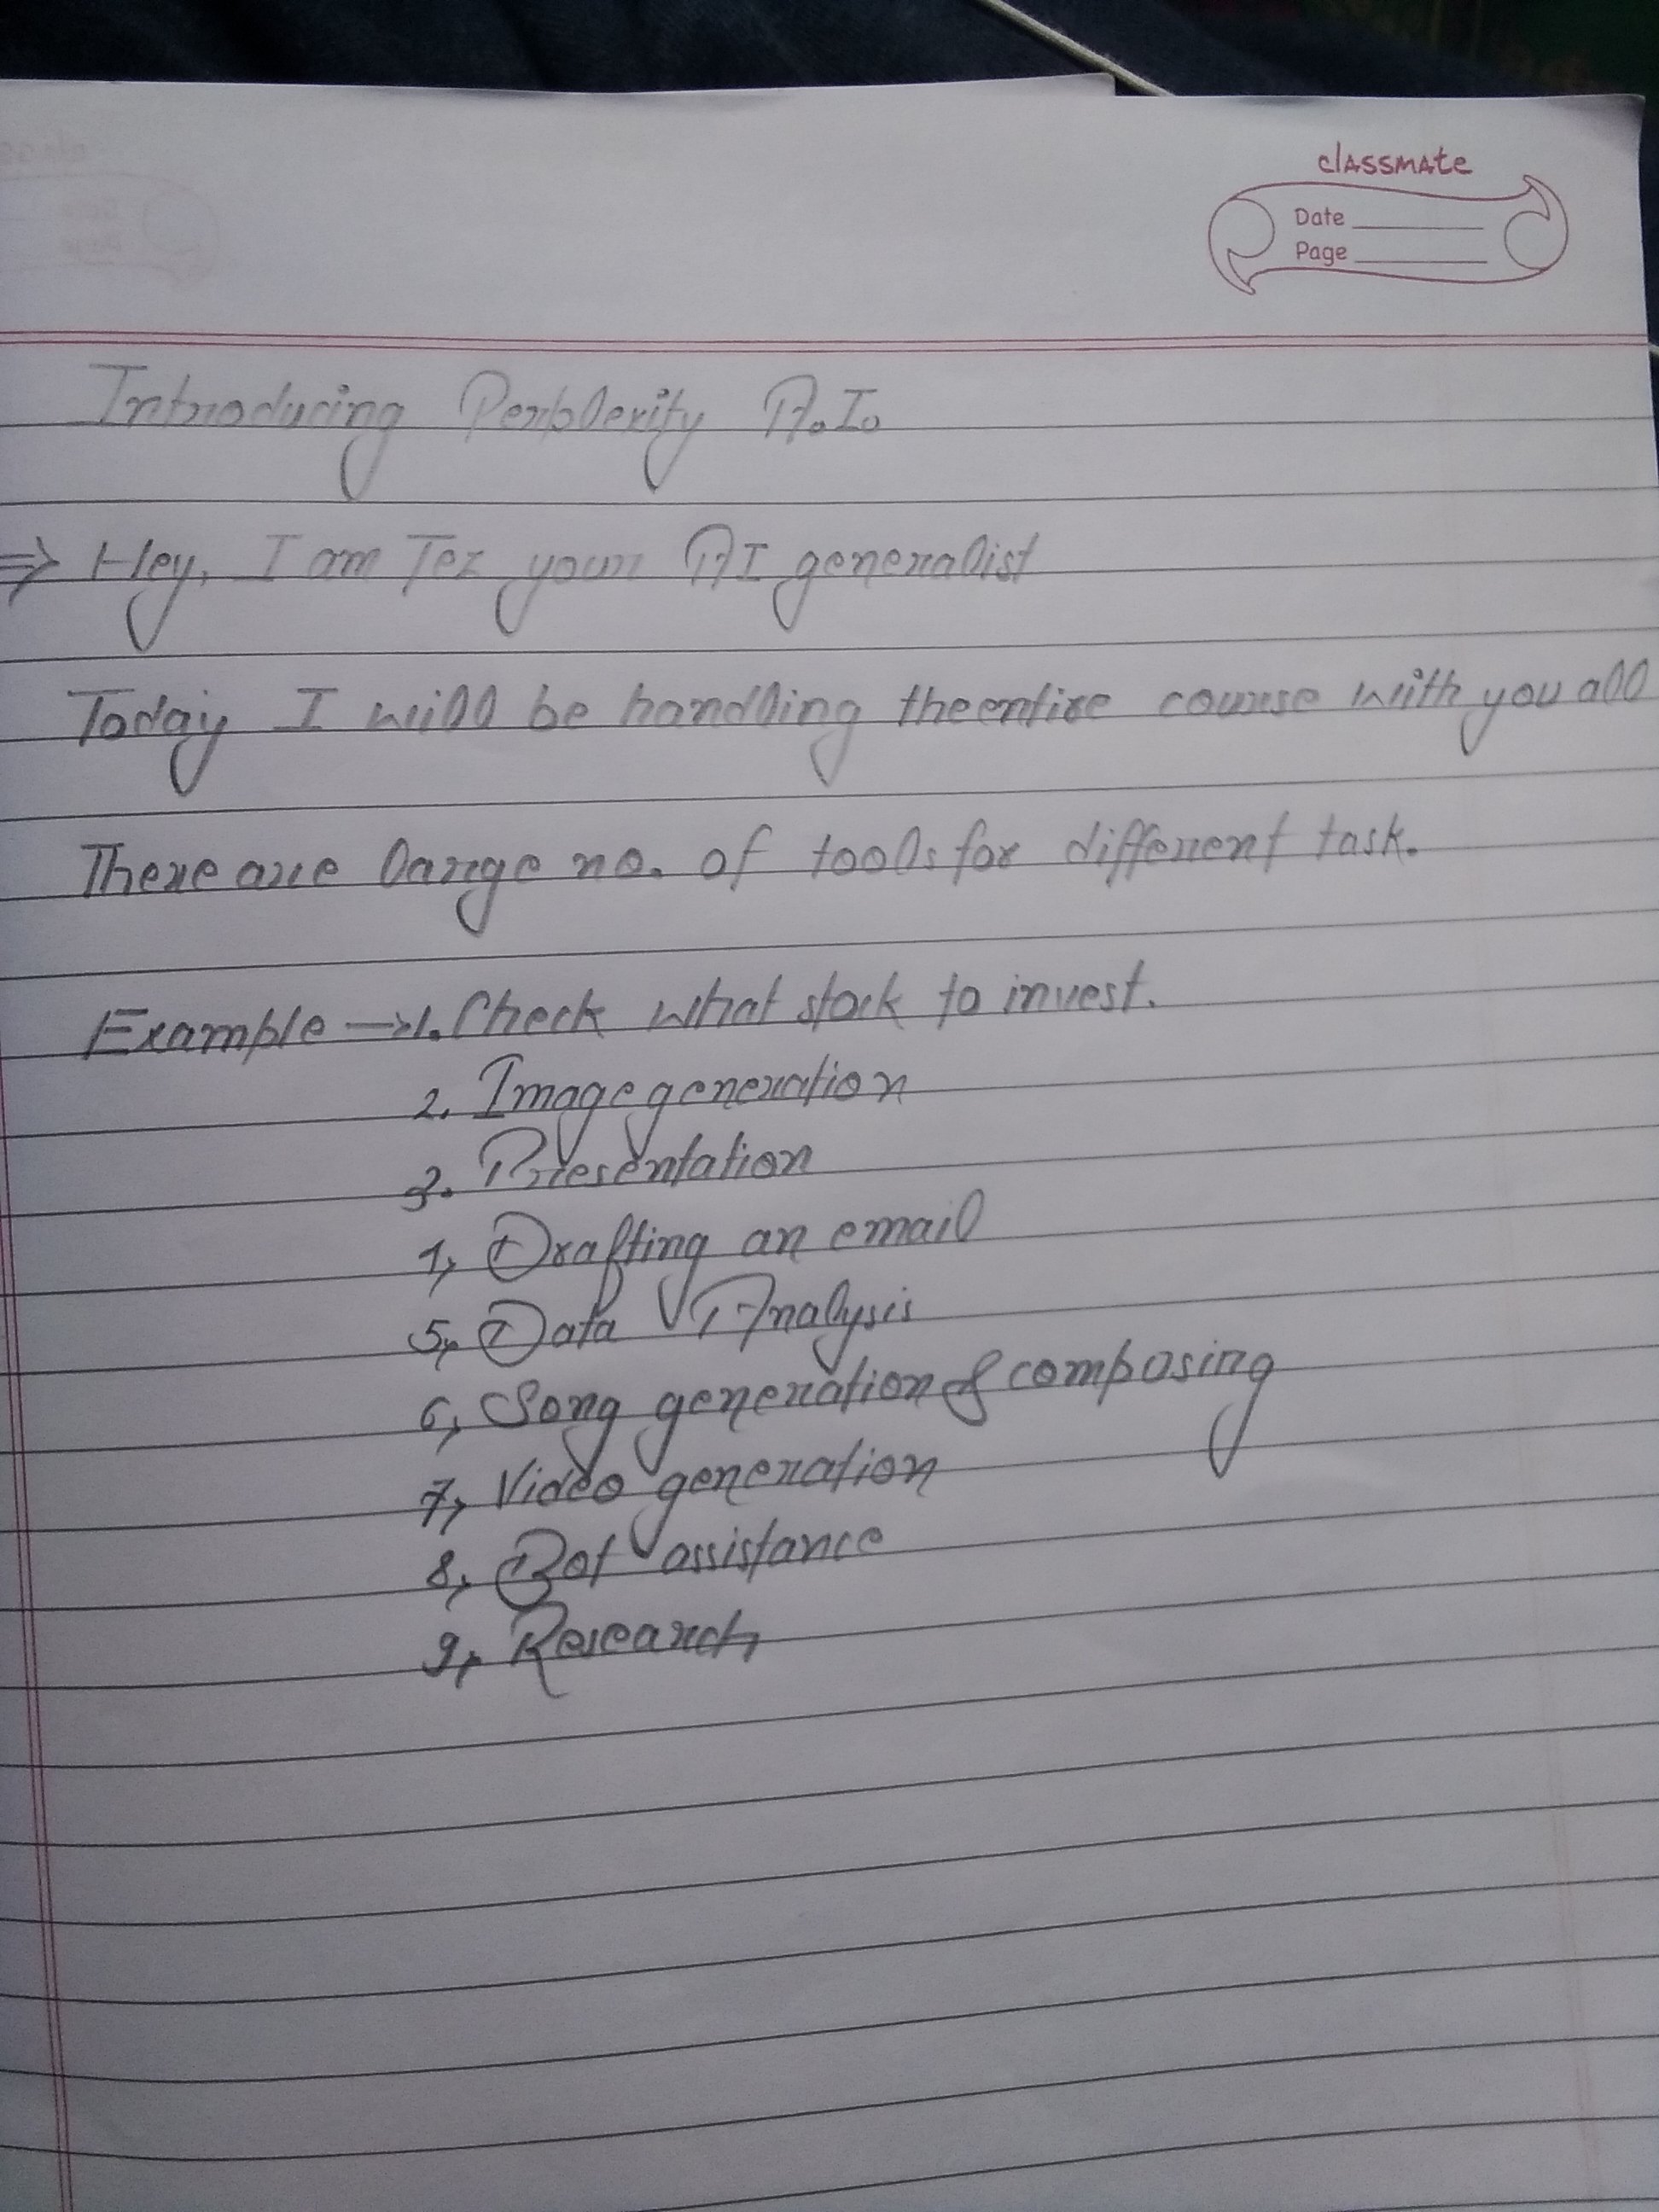 classmate
Date
Page
Introducing Perplexity A.I.
⇒ Hey, I am Tez your AI generalist
Today I will be handling the entire course with you all
There are large no. of tools for different task.
Example → 1. Check what stock to invest.
2. Image generation
3. Presentation
4, Drafting an email
5, Data Analysis
6, Song generation & composing
7, Video generation
8, Bot assistance
9, Research